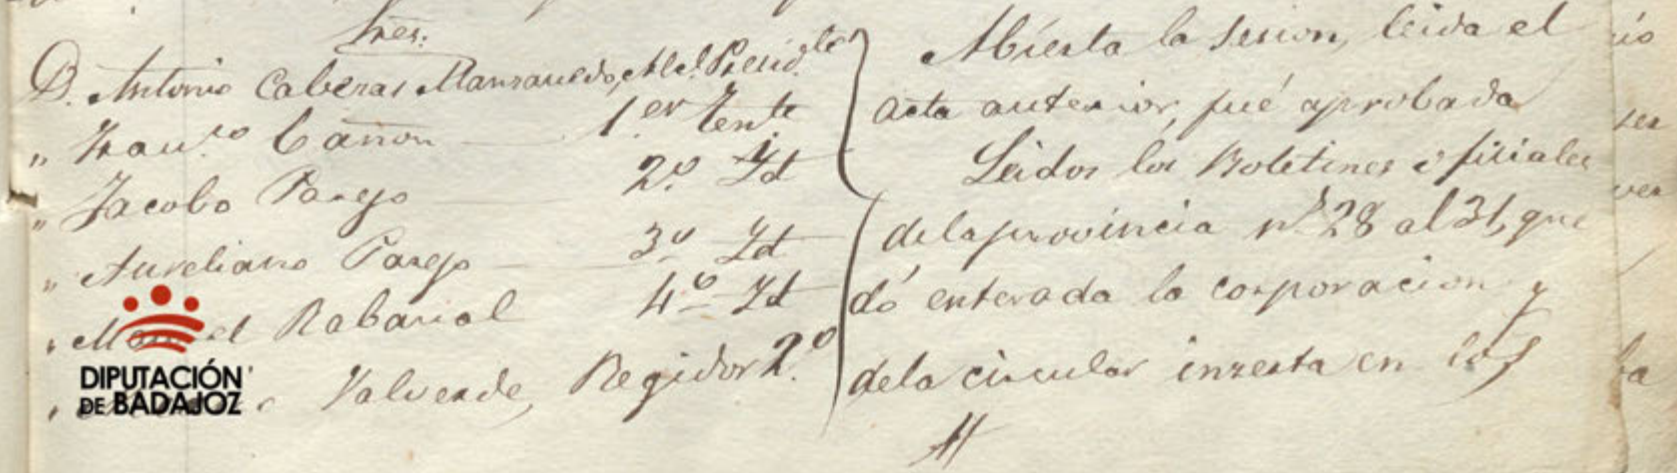 Sres.
D. Antonio Cabezas Manzanedo, Alcl. Presid.te
" Fran.co Cañon 1.er Tente
" Jacobo Parejo 2.º Id
" Aureliano Parejo 3.º Id
" Manuel Rabanal 4.º Id
" Valverde, Regidor 2.º
Abierta la sesion, leida el
acta anterior, fué aprobada
Leidos los Boletines oficiales
dela provincia n.s 28 al 31, que
dó enterada la corporacion y
dela circular inserta en los
DIPUTACIÓN
DE BADAJOZ